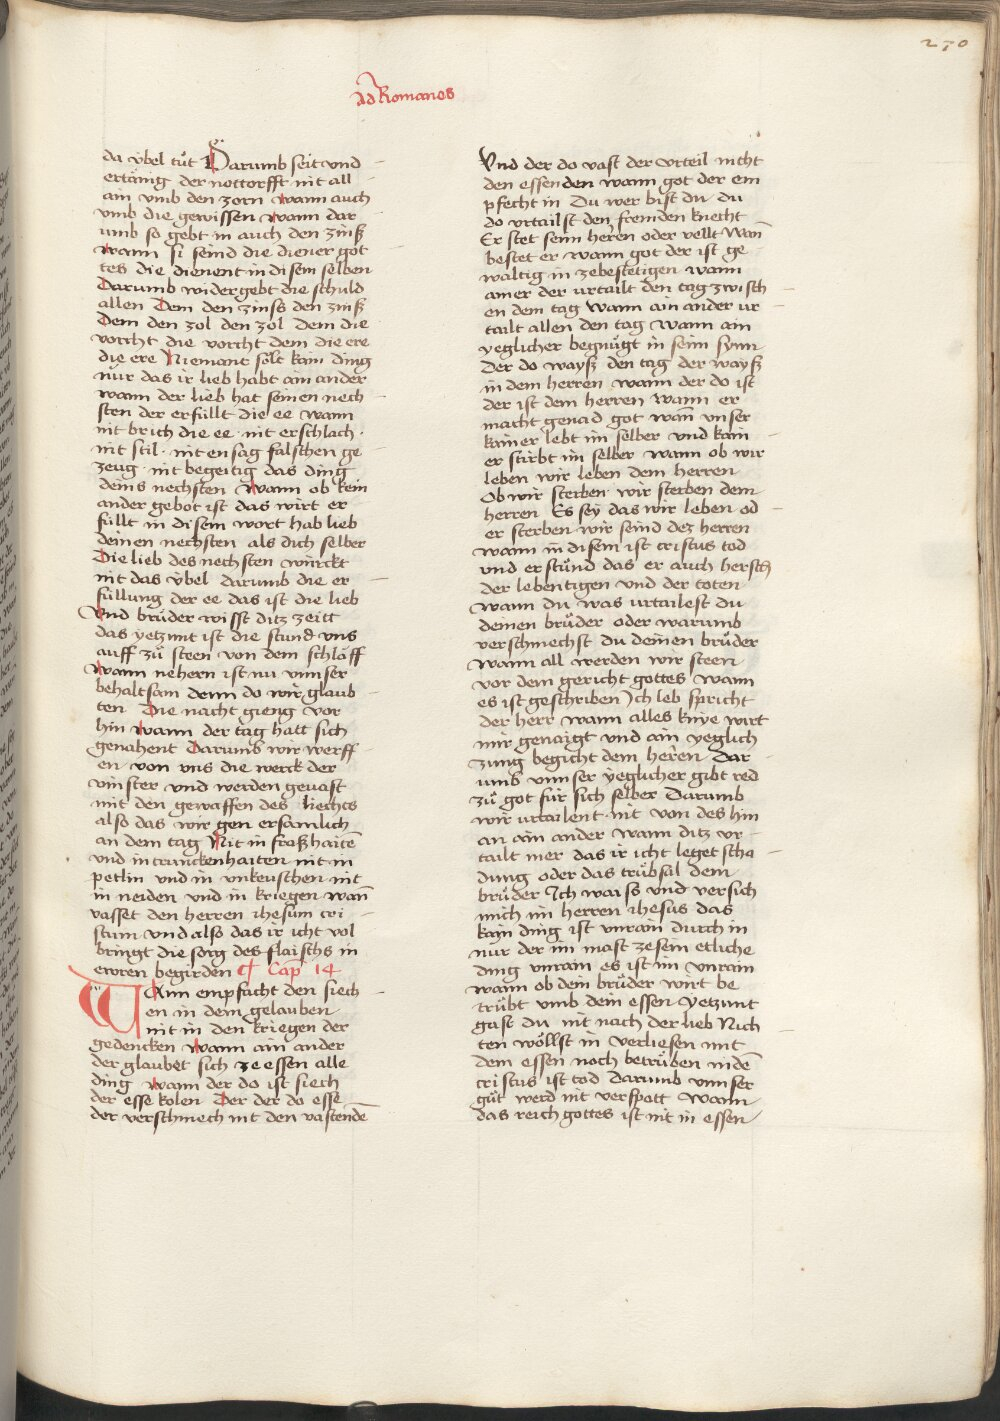 270
ad Romanos
da ÿbel tuͦt Darumb seit vnd
ertänig der nottorfft nit all
ain vmb den zorn wann auch
vmb die gewissen wann dar
umb so gebt in auch den zinß
wann si seind die diener got
tes die dienent in disem selben
Darumb widergebt die schuld
allen Dem den zinss den zinß
Dem den zol den zol dem die
vorcht die vorcht dem die ere
die ere Niemant sölt kain ding
nür das ir lieb habt ain ander
wann der lieb hat seinen nech
sten der erfüllt die ee wann
nit brich die ee nit erschlach ·
nit stil · nit ensag falschen ge
zeug · nit begeitig das ding
deins nechsten wann ob kein
ander gebot ist das wirt er
füllt in disem wort hab lieb
deinen nechsten als dich selber
Die lieb des nechsten würckt
nit das ÿbel darumb die er
füllung der ee das ist die lieb
Vnd bruͤder wisst ditz zeitt
das yetzunt ist die stund vns
auff zuͦ steen von dem schlaͤff
wann nehern ist nu vnnser
behaltsam denn do wir glaub
ten Die nacht gieng vor
hin wann der tag hatt sich
genahent Darumb wir werff
en von vns die werck der
vinster vnd werden geuast
mit den gewaffen des liechts
also das wir gen ersamlich
an dem tag Nit in fraßhaitē
vnd in trunckenhaiten nit in
petlin vnd in vnkeuschen nit
in neiden vnd in kriegen wañ
vasset den herren ihesum cri
stum vnd also das ir icht vol
bringt die sorg des flaischs in
ewren begirden ¶ Cap̄ 14
Wann empfacht den siech
en in dem gelauben
nit in den kriegen der
gedencken wann ain ander
der glaubet sich ze essen alle
ding wann der do ist siech
der esse kolen Der der do esse
der verschmech nit den vastendē
Vnd der do vast der vrteil nicht
den essenden wann got der em
pfecht in Du wer bist du du
do vrtailst den fremden knecht
Er stet seim heren oder vellt Wañ
bestet er wann got der ist ge
waltig in zebestetigen wann
ainer der urtailt den tag zwisch
en dem tag Wann ain ander ur
tailt allen den tag wann ain
yeglicher begnuͤgt in seim synn
Der do wayß den tag der wayß
in dem herren wann der do ist
der ist dem herren wann er
macht genad got wañ vnser
kainer lebt im selber vnd kain
er stirbt im selber wann ob wir
leben wir leben dem herren
Ob wir sterben wir sterben dem
herren Es sey das wir leben od
er sterben wir seind dez herren
wann in disem ist cristus tod
vnd erstuͤnd das er auch hersch
der lebentigen vnd der toten
wann du was urtailest du
deinen bruͤder oder warumb
verschmechst du deinen bruͤder
wann all werden wir steen
vor dem gericht gottes wann
es ist geschriben Ich leb spricht
der herr wann alles knye wirt
mir genaigt vnd ain yeglich
zung begicht dem heren Dar
umb vnnser yeglicher gibt red
zuͦ got für sich selber Darumb
wir urtailent nit von des hin
an ain ander wann ditz vr
tailt mer das ir icht leget scha
dung oder das truͤbsal dem
bruͤder Ich waiss vnd versich
mich im herren ihesus das
kain ding ist vnrain durch in
nur der im mast ze sein etliche
ding vnrain es ist im vnrain
wann ob dein bruͤder wirt be
truͤbt vmb dein essen Yetzunt
gast du nit nach der lieb Nich
ten wöllst in verliesen mit
dem essen noch betruͤben indē
cristus ist tod Darumb vnnser
guͦt werd nit verspott Wann
das reich gottes ist nit in essen